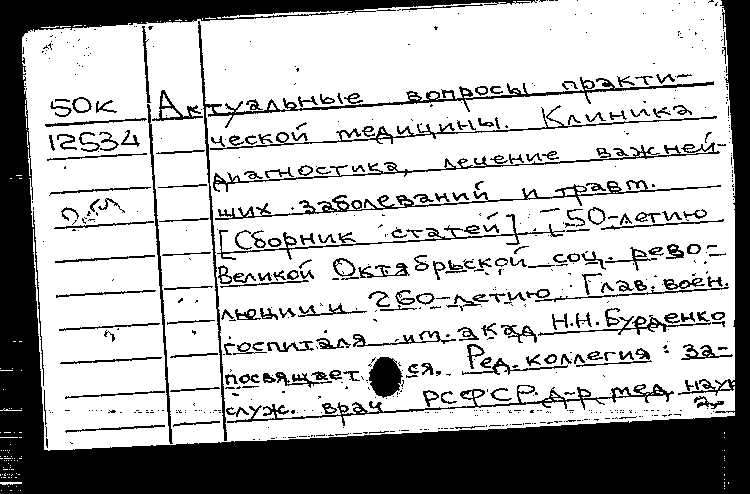 50к Актуальные вопросы практи-
12534 ческой медицины. Клиника
диагностика, лечение важней-
ших заболеваний и травм.
[Сборник статей]. [50-летию
Великой Октябрьской соц. рево-
люции и 260-летию Глав. воен.
госпиталя им. акад. Н.Н. Бурденко
посвящается. Ред. коллегия: за-
служ. врач РСФСР д-р мед. наук